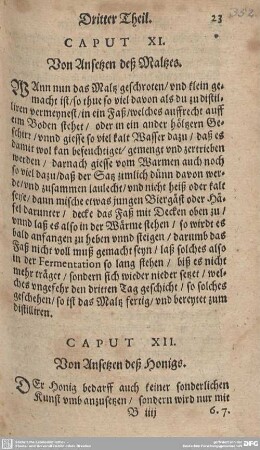 Dritter Theil. 23
352
CAPUT XI.
Von Ansetzen deß Maltzes.
WAnn nun das Maltz geschroten/ vnd klein ge-
macht ist/ so thue so viel davon als du zu distil-
liren vermeynest/ in ein Faß/ welches auffrecht auff
eim Boden stehet/ oder in ein ander höltzern Ge-
schirr/ vnnd giesse so viel kalt Wasser dazu/ daß es
damit wol kan befeuchtiget/ gemenget vnd zertrieben
werden/ darnach giesse vom Warmen auch noch
so viel dazu/ daß der Satz zimlich dünn davon wer-
de/ vnd zusammen laulecht/ vnd nicht heiß oder kalt
seye/ dann mische etwas jungen Biergäst oder Hä-
fel darunter/ decke das Faß mit Decken oben zu/
vnnd laß es also in der Wärme stehen/ so wirdt es
bald anfangen zu heben vnnd steigen/ darumb das
Faß nicht voll muß gemacht seyn/ laß solches also
in der Fermentation so lang stehen/ biß es nicht
mehr träget/ sondern sich wieder nieder setzet/ wel-
ches vngefehr den dritten Tag geschicht/ so solches
geschehen/ so ist das Maltz fertig/ vnd bereytet zum
distilliren.
CAPUT XII.
Von Ansetzen deß Honigs.
DEr Honig bedarff auch keiner sonderlichen
Kunst vmb anzusetzen/ sondern wird nur mit
B iiij 6. 7.